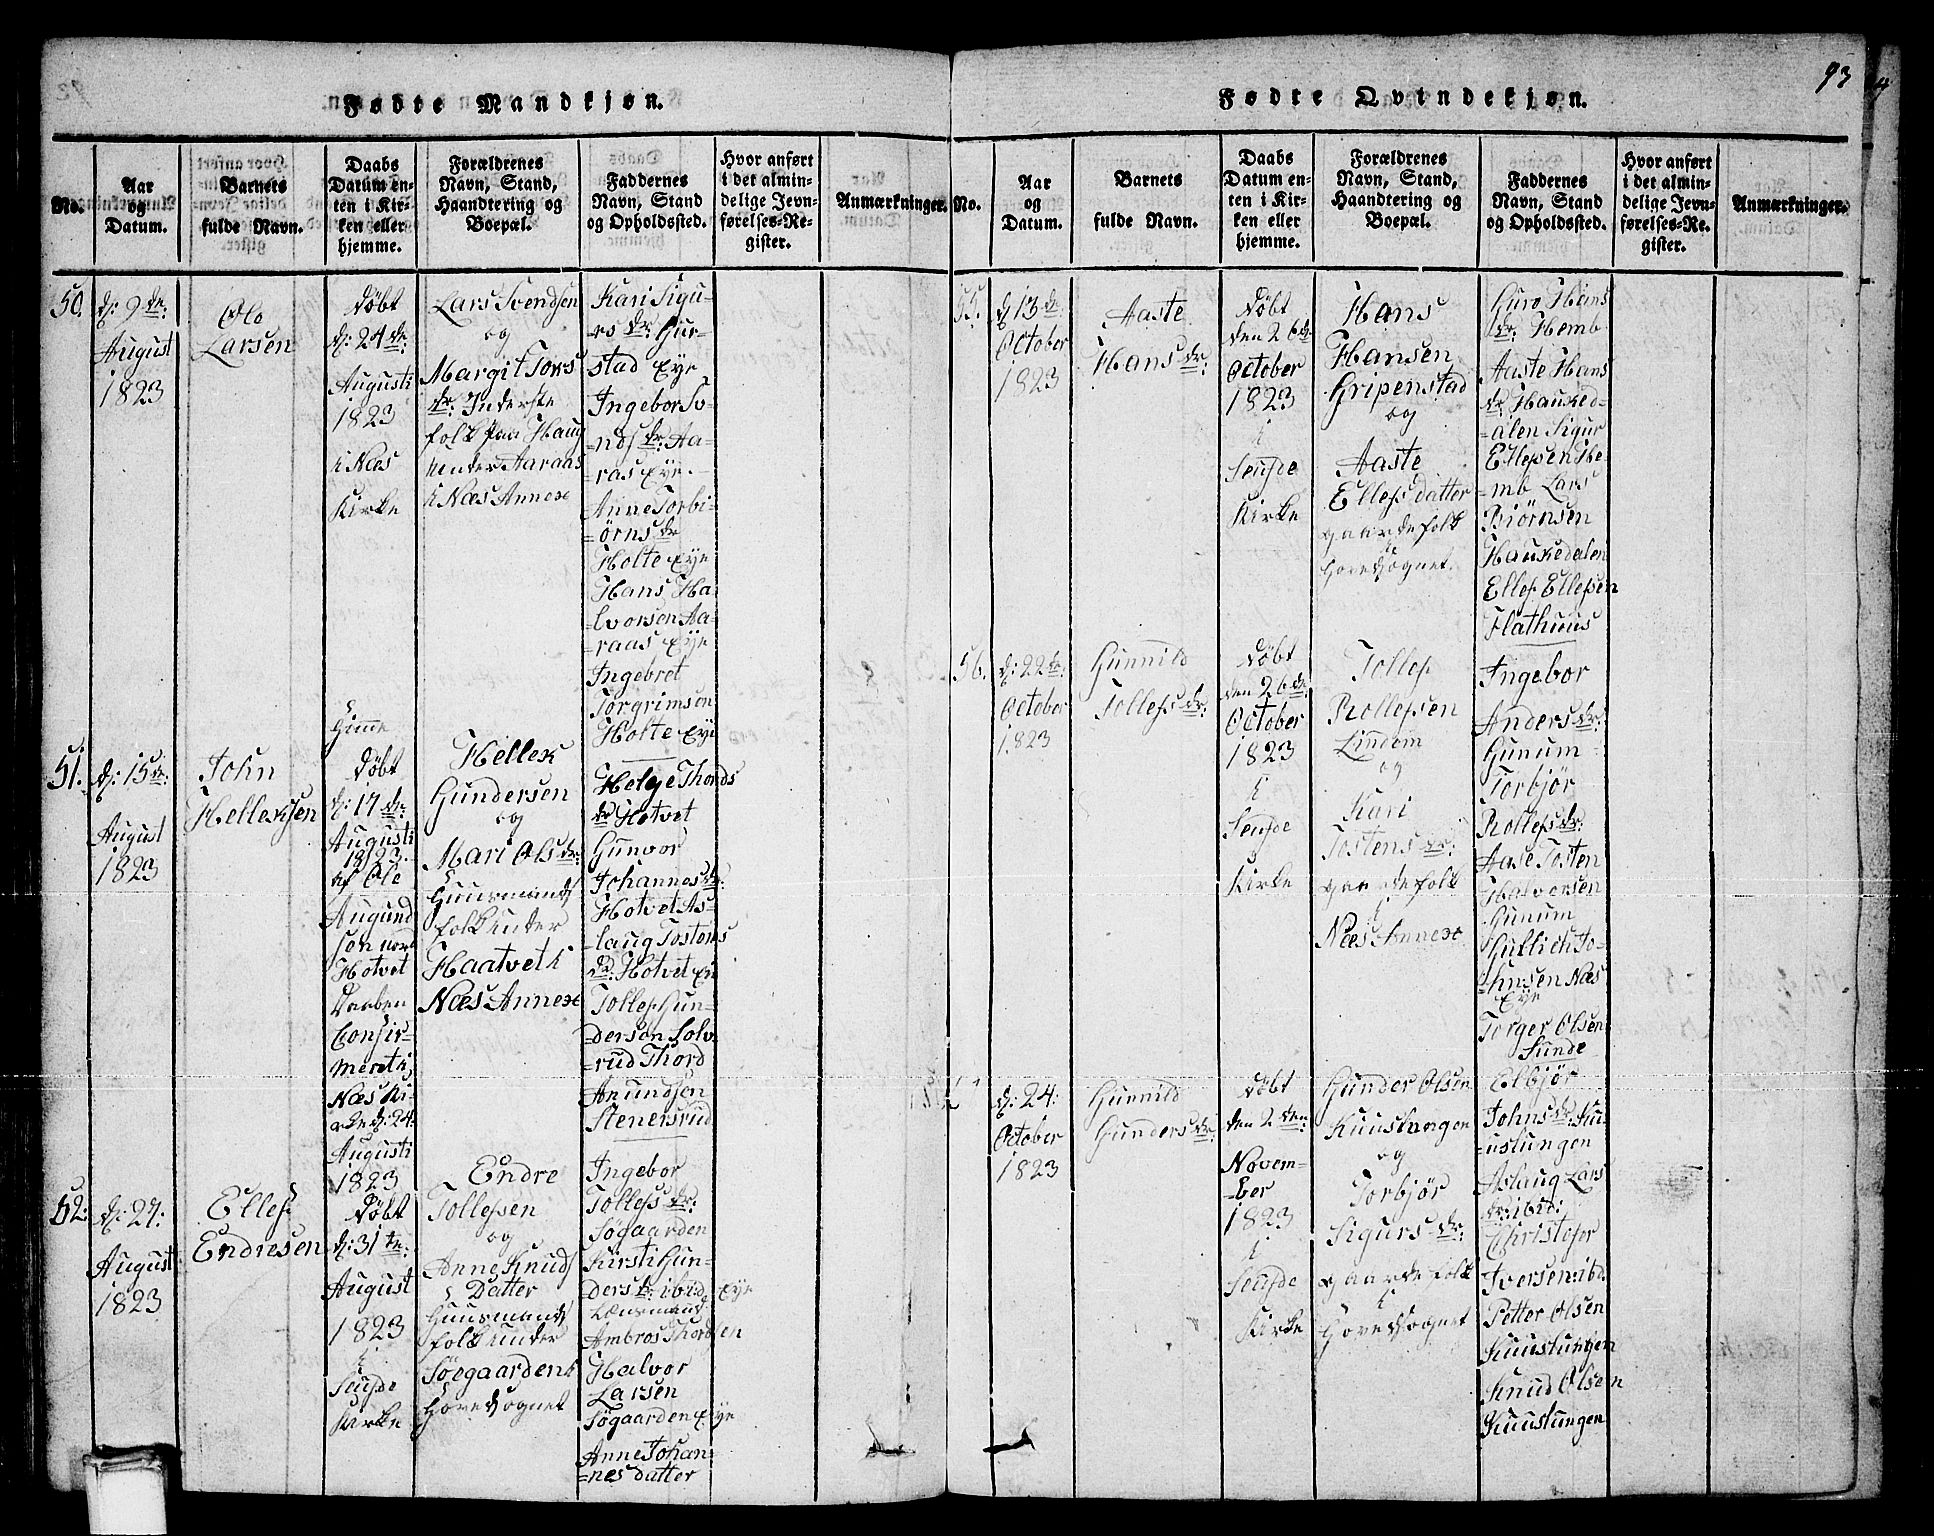 93
Fødte Mandkjøn.
No.
Aar
og
Datum.
Barnets
fulde Navn.
Daabs
Datum en-
ten i Kir-
ken eller
hjemme.
Forældrenes
Navn, Stand,
Haandtering og
Boepæl.
Faddernes
Navn, Stand
og Opholdssted.
Hvor anført
i det almin-
delige Jevn-
førelses-Re-
gister.
Anmærkninger.
50.
d: 9de:
August
1823
Ole
Larsen
Døbt
d: 24de:
Augusti
1823
i Næs
Kirke
Lars Svendsen
og
Margit Tors
dr: Inderste
folk paa Haug
under Aaraas
i Næs Annex
Kari Sigu-
rs dr: Gur-
stad Eye
Ingebor Sv-
=nds dr: Aa-
ras Eye.
Anne Torbi-
=ørns dr
Holte Eye
Hans Ha-
=lvorsen Aa-
=raas Eye
Ingebret
Torgrimsen
Holte Eye
51.
d: 15de:
August
1823
John
Helleksen
Hjemme
Døbt
d: 17de:
Augusti
1823.
af Ole
Augund
sen nord
Hotvet
Daaben
Confir-
meret i
Næs Ki-
rke d: 24.
Augusti
1823
Hellek
Gundersen
og
Mari Ols dr:
Huusmands
folk under
Haatvet i
Næs Annex
Helge Thords
dr Hotvet
Gunvor
Johannes dr:
Hotvet As-
=laug Tostens
dr: Hotvet Ey
Tollef Gun-
=dersen Solv-
=rud Thord
Anundsen
Stenersrud
52.
d: 27:
August
1823
Ellef
Endresen
Døbt
d: 31te:
August
1823
i
Seufde
Kirke
Endre
Tollefsen
og
Anne Knuds
Datter
Huusmands
folk under
Søegaarden i
Hovedsognet
Ingebor
Tollefs dr:
Søgaarden
Kirsti Gun-
ders dr: ibid: Eye
Lænsmand
Ambros Thordsen
Halvor
Larsen
Søgaarden Eye
Anne Johan-
=nesdatter
Fødte Qvindekjøn.
No.
Aar
og
Datum.
Barnets
fulde Navn.
Daabs
Datum en-
ten i Kir-
ken eller
hjemme.
Forældrenes
Navn, Stand,
Haandtering og
Boepæl.
Faddernes
Navn, Stand
og Opholdssted.
Hvor anført
i det almin-
delige Jevn-
førelses-Re-
gister.
Anmærkninger.
55.
d: 13de:
October
1823
Aaste
Hans dr:
Døbt
den 26de:
October
1823
i
Seufde
Kirke
Hans
Hansen
Gripenstad
og
Aaste
Ellefsdatter
gaardefolk
i
Hovedsognet.
Guro Hans
dr: Hemb
Aaste Hans
dr Hauked-
=alen Sigur
Ellefsen He-
=mb Lars
Biørnsen
Haukedalen
Ellef Ellefsen
Flathuus
56.
d: 22de:
October
1823
Gunnild
Tollefs dr:
Døbt
den 26de:
October
1823
i
Seufde
Kirke
Tollef
Rollefsen
Lindem
og
Kari
Tostens dr:
gaardefolk
i
Næs Annex
Ingebor
Anders dr:
Gunum-
Torbjør
Rollefs dr:
Aase Tosten
Halvorsen
Gunum
Gullich Jo-
=hnsen Næs
Eye
Torger Olsen
Sunde
d: 24:
October
1823
Gunnild
Gunders dr:
Døbt
den 2den:
Novem-
=ber
1823
i
Seufde
Kirke
Gunder Olsen
Kuuslungen
og
Torbjør
Sigurs dr:
gaardefolk
i
Hovedsognet
Elbjør
Johns dr: Ku-
=uslungen
Aslaug Lars
dr: ibid:
Christofer
Iversen: ibd
Petter Olsen
Kuuslungen
Knud Olsen
Kuuslungen